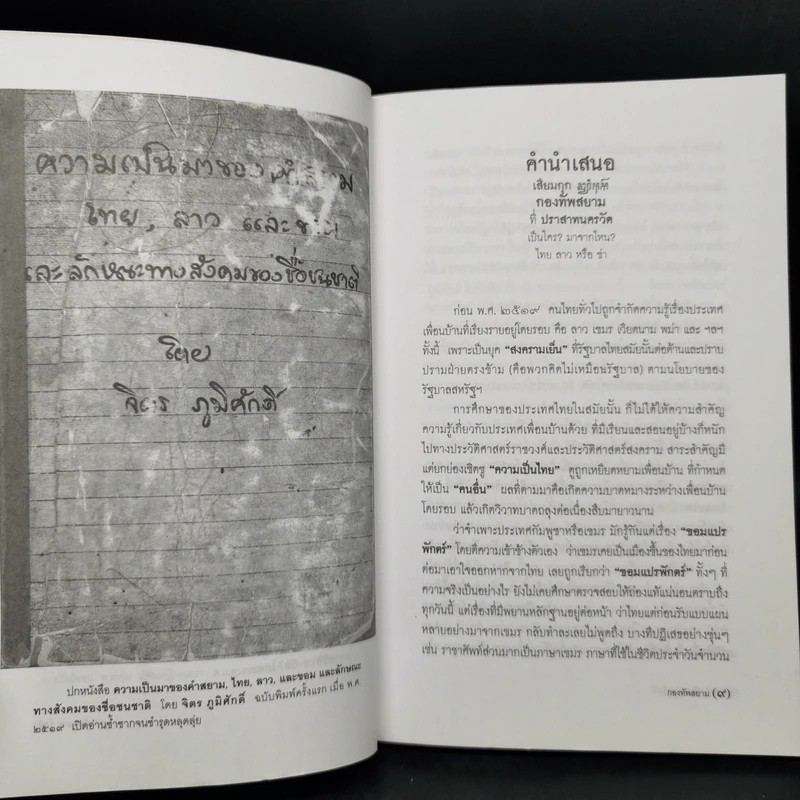 ความเป็นมาของคำสยาม
ไทย, ลาว และขอม
และลักษณะทางสังคมของชื่อชนชาติ
โดย
จิตร ภูมิศักดิ์
ปกหนังสือ ความเป็นมาของคำสยาม, ไทย, ลาว, และขอม และลักษณะ
ทางสังคมของชื่อชนชาติ โดย จิตร ภูมิศักดิ์ ฉบับพิมพ์ครั้งแรก เมื่อ พ.ศ.
๒๕๑๙ เปิดอ่านซ้ำซากจนชำรุดหลุดลุ่ย
คำนำเสนอ
เสียมกุก
กองทัพสยาม
ที่ ปราสาทนครวัด
เป็นใคร? มาจากไหน?
ไทย ลาว หรือ ข่า
ก่อน พ.ศ. ๒๕๑๙ คนไทยทั่วไปถูกจำกัดความรู้เรื่องประเทศ
เพื่อนบ้านที่เรียงรายอยู่โดยรอบ คือ ลาว เขมร เวียดนาม พม่า และ ฯลฯ
ทั้งนี้ เพราะเป็นยุค "สงครามเย็น" ที่รัฐบาลไทยสมัยนั้นต่อต้านและปราบ
ปรามฝ่ายตรงข้าม (คือพวกคิดไม่เหมือนรัฐบาล) ตามนโยบายของ
รัฐบาลสหรัฐฯ
การศึกษาของประเทศไทยในสมัยนั้น ก็ไม่ได้ให้ความสำคัญ
ความรู้เกี่ยวกับประเทศเพื่อนบ้านด้วย ที่มีเรียนและสอนอยู่บ้างก็หนัก
ไปทางประวัติศาสตร์ราชวงศ์และประวัติศาสตร์สงคราม สาระสำคัญมี
แต่ยกย่องเชิดชู "ความเป็นไทย" ดูถูกเหยียดหยามเพื่อนบ้าน ที่กำหนด
ให้เป็น "คนอื่น" ผลที่ตามมาคือเกิดความบาดหมางระหว่างเพื่อนบ้าน
โดยรอบ แล้วเกิดวิวาทบาดถลุงต่อเนื่องสืบมายาวนาน
ว่าจำเพาะประเทศกัมพูชาหรือเขมร มักรู้กันแต่เรื่อง "ขอมแปร
พักตร์" โดยตีความเข้าข้างตัวเอง ว่าเขมรเคยเป็นเมืองขึ้นของไทยมาก่อน
ต่อมาเอาใจออกหากจากไทย เลยถูกเรียกว่า "ขอมแปรพักตร์" ทั้งๆ ที่
ความจริงเป็นอย่างไร ยังไม่เคยศึกษาตรวจสอบให้ถ่องแท้แน่นอนตราบถึง
ทุกวันนี้ แต่เรื่องที่มีพยานหลักฐานอยู่ต่อหน้า ว่าไทยแต่ก่อนรับแบบแผน
หลายอย่างมาจากเขมร กลับทำละเลยไม่พูดถึง บางทีปฏิเสธอย่างขุ่นๆ
เช่น ราชาศัพท์ส่วนมากเป็นภาษาเขมร ภาษาที่ใช้ในชีวิตประจำวันจำนวน
กองทัพสยาม (๙)